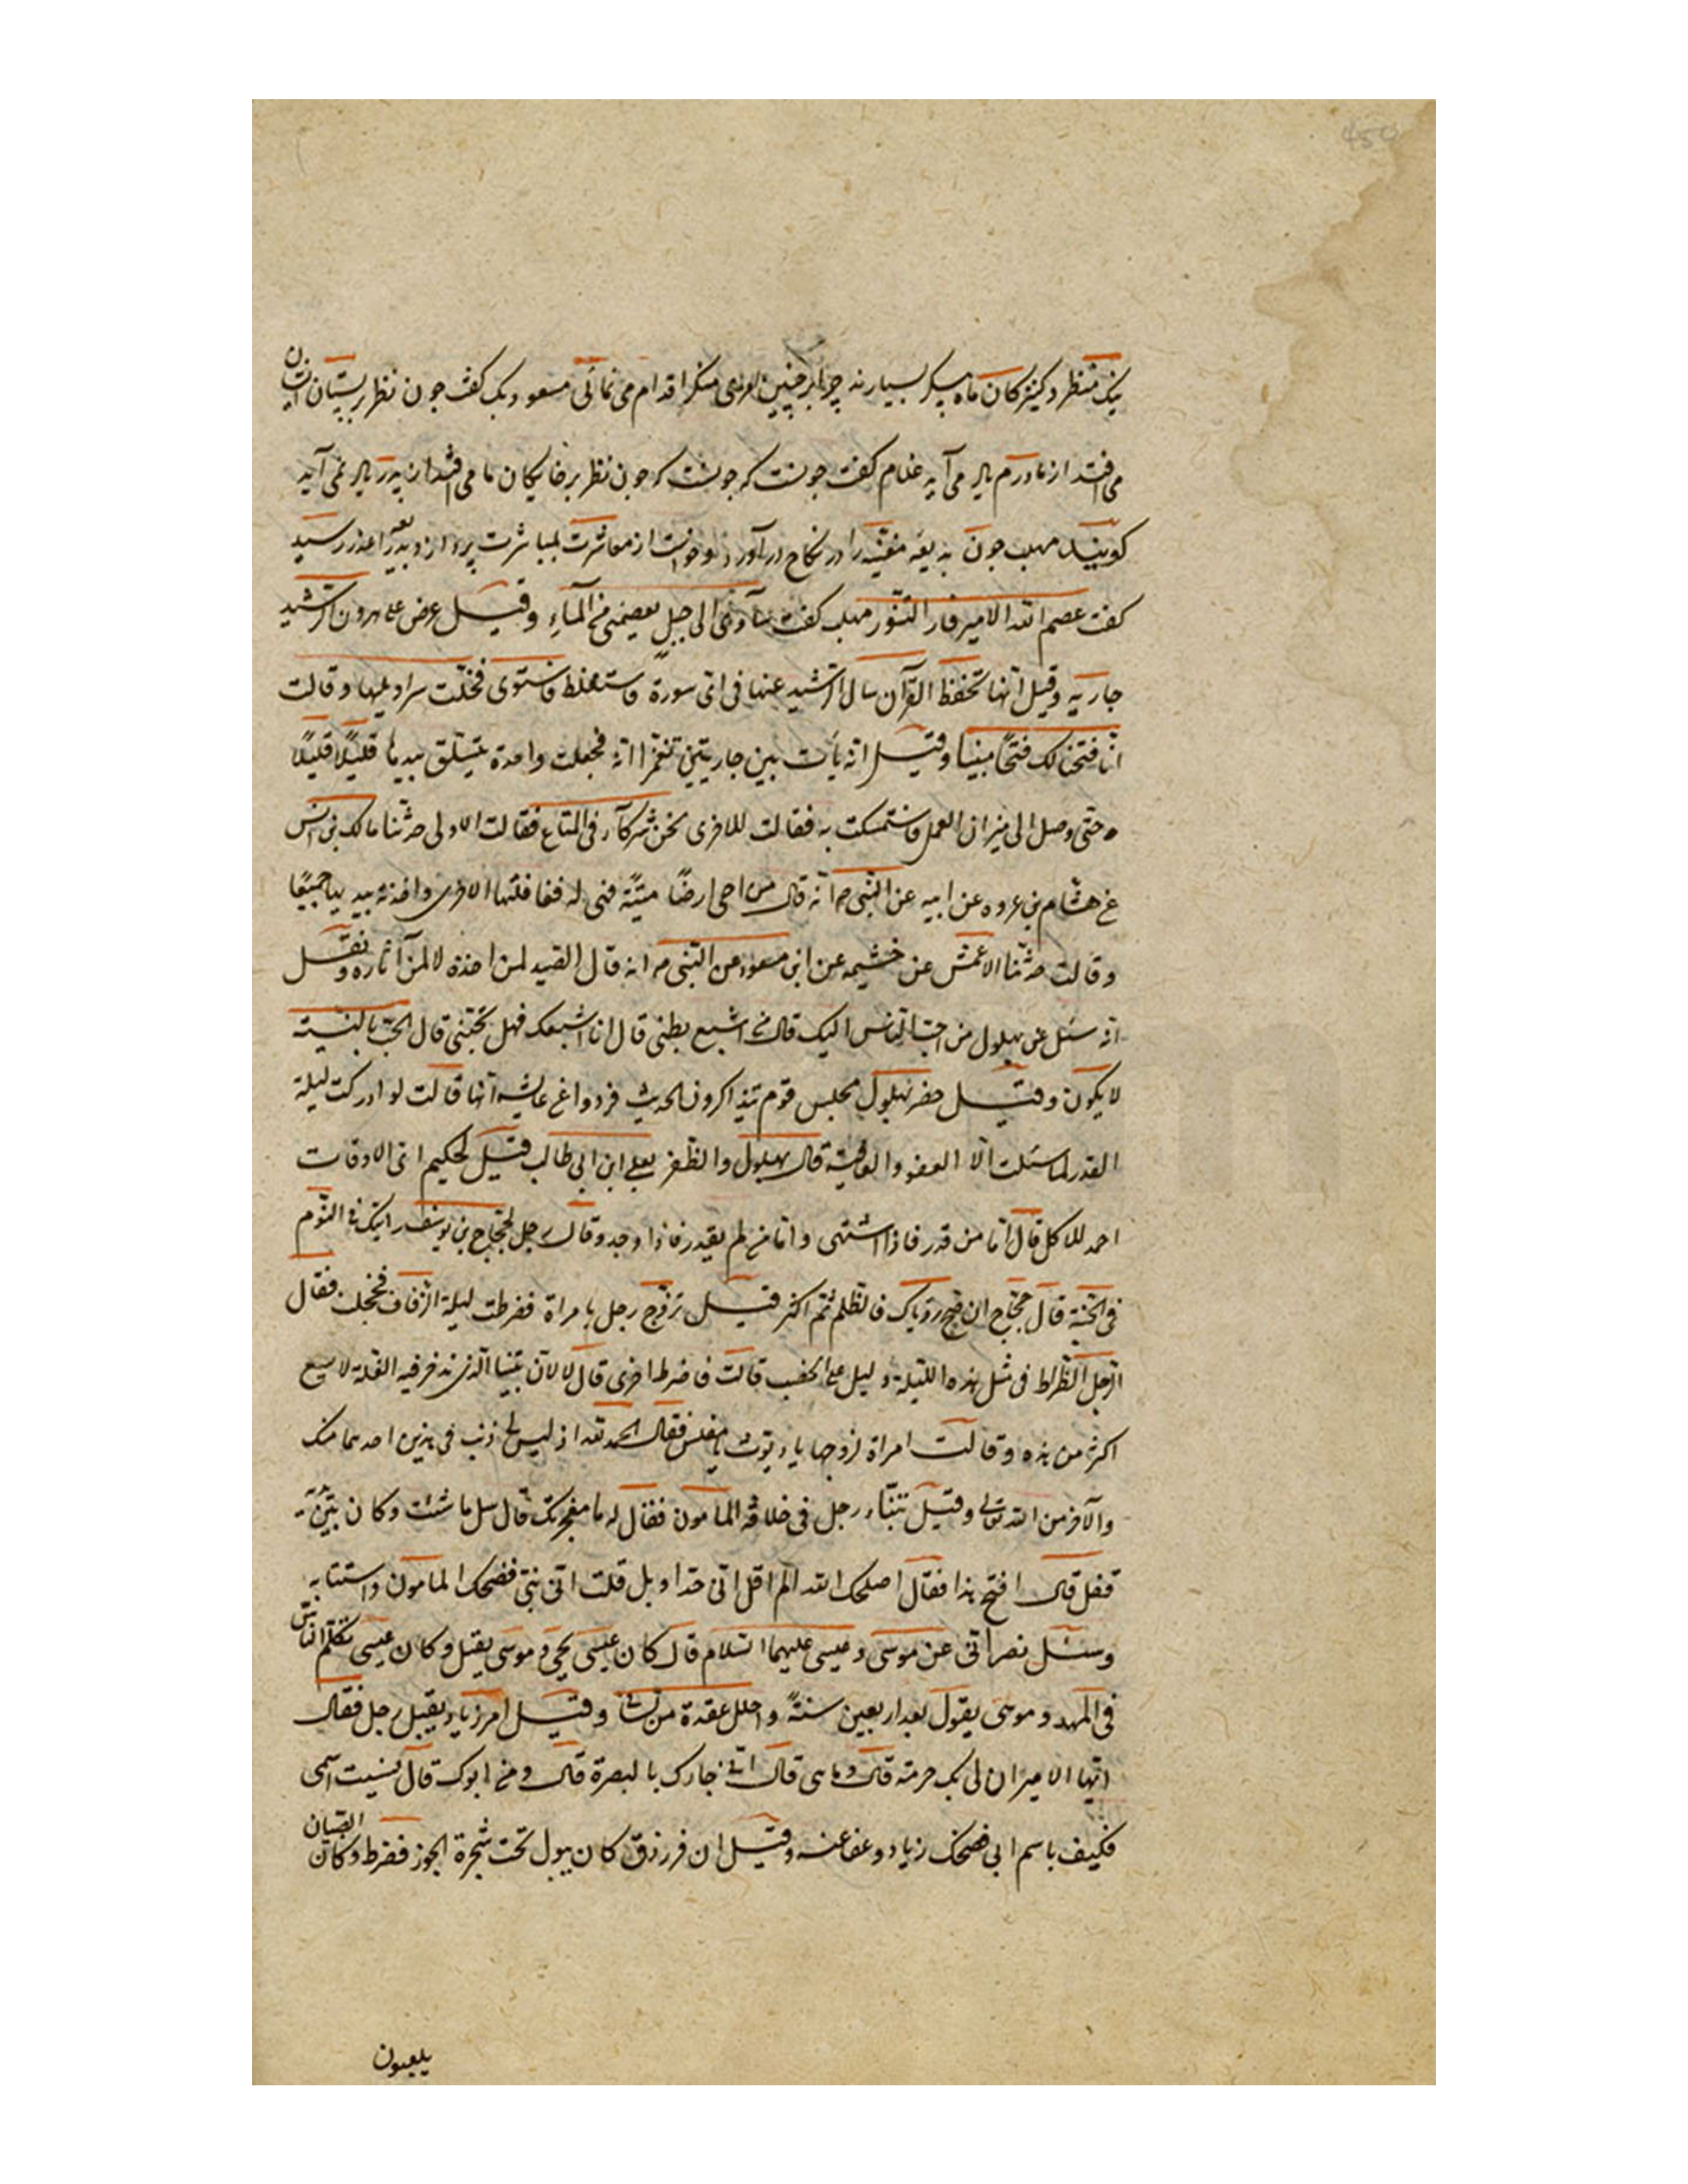 نیک منظر و کنیزکان ماه پیکر بسیارند چرا بر چنین امری منکر اقدام می نمائی مسعود بک گفت چون نظر بر پستان ایشان
می افتد از مادرم یاد می آید غلام گفت چونست که چونست که چون نظر بر خایکان ما می افتد از پدر یاد نمی آید
کویند مهلب چون بدیعه مغنیه را در نکاح در آورد و خواست از معاشرت بمباشرت پردازد بدیعه را عذر رسید
کفت عصم الله الامیر فار التنور مهلب کفت سآوی الی جبل یعصمنی من المآء و قیل عرض علی هرون الرشید
جاریه و قیل انها تحفظ القرآن سال الرشید عنها فی ای سورة فاستغلظ فاستوی فحلت سراویلها و قالت
انا فتحنا لک فتحا مبینا و قیل انه بات بین جاریتین فجعلت واحدة بیدیها قلیلا قلیلا
حتی وصل الی میزان العمل فاستمسکت به فقالت للاخری نحن شرکآء فی المتاع فقالت الاولی حدثنا مالک بن انس
عن هشام بن عروه عن ابیه عن النبی ص انه قال من احی ارضا میتة فهی له فغافلتها الاخری واخذته بیدیها جمیعا
و قالت حدثنا الاعمش عن خثیمه عن ابن مسعود عن النبی ص انه قال الصید لمن اخذه لا لمن آثاره و نقل
انه سئل عن بهلول من احب الناس الیک قال من اشبع بطنی قال انا اشبعک فهل تحبنی قال الحب بالنسیة
لا یکون و قیل حضر بهلول مجلس قوم یتذاکرون الحدیث فرووا عن عایشه انها قالت لو ادرکت لیلة
القدر لما سئلت الا العفو و العافیة قال بهلول و الظفر بعلی ابن ابی طالب قیل لحکیم ای الاوقات
احمد للاکل قال اما من قدر فاذا اشتهی و اما من لم یقدر فاذا وجد و قال رجل لحجاج بن یوسف رایتک فی النوم
فی الجنة قال حجاج ان صح رویاک فالظلم ثم اکثر قیل تزوج رجل بامراة فضرطت لیلة الزفاف فخجلت فقال
الرجل الضراط فی مثل هذه اللیلة دلیل علی الخصب قالت فاضرط اخری قال لا لان بیتنا الذی ندخر فیه الغلة لا یسع
اکثر من هذه و قالت امراة لزوجها یا دیوث یا مفلس فقال الحمد لله اذ لیس لی ذنب فی هذین احدهما منک
والآخر من الله تعالی و قیل تنباء رجل فی خلافة المامون فقال له ما معجزتک قال سل ما شئت و کان بین یدیه
قفل قال افتح هذا فقال اصلحک الله الم اقل انی حداد بل قلت انی نبی فضحک المامون و استتابه
و سئل نصرانی عن موسی و عیسی علیهما السلام قال کان عیسی یحی و موسی یقتل و کان عیسی تکلم الناس
فی المهد و موسی یقول بعد اربعین سنة و احلل عقدة من لسانی و قیل امر زیاد بقتل رجل فقال
ایها الامیر ان لی بک حرمة قال و ما هی قال ابی جارک بالبصرة قال و من ابوک قال نسیت اسمی
فکیف باسم ابی فضحک زیاد و عفا عنه و قیل ان فرزدق کان یبول تحت شجرة الجوز فضرط و کان الصبیان
یلعبون